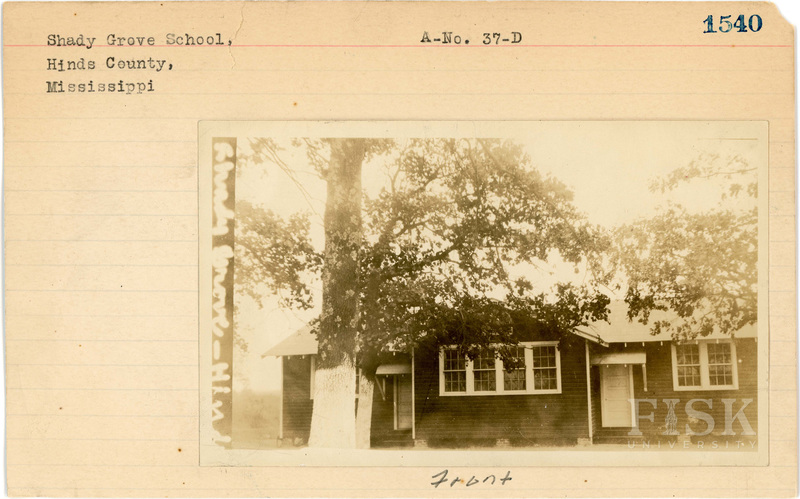 Shady Grove School,
Hinds County,
Mississippi
A-No. 37-D
1540
Shady Grove - Hinds
FISK
UNIVERSITY
Front